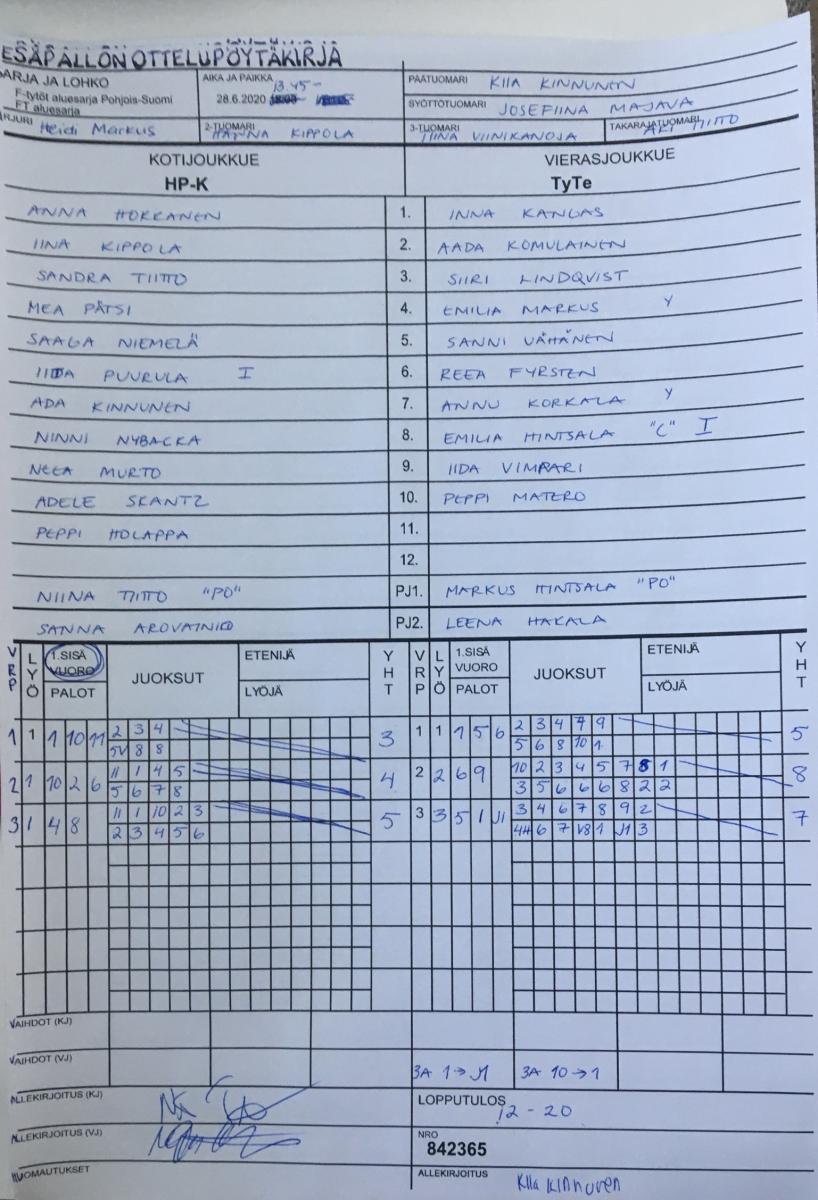 ESÄPALLON OTTELUPÖYTÄKIRJA
ARJA JA LOHKO
F-tytöt aluesarja Pohjois-Suomi
FT aluesarja
AIKA JA PAIKKA
13.45-
28.6.2020
PÄÄTUOMARI KIIA KINNUNEN
SYÖTTÖTUOMARI JOSEFIINA MAJAVA
RJURI Heidi Markus
2-TUOMARI HANNA KIPPOLA
3-TUOMARI TIINA VIINIKANOJA
TAKARAJATUOMARI AKI TIITTO
KOTIJOUKKUE VIERASJOUKKUE
HP-K TyTe
ANNA HOKKANEN 1. INNA KANGAS
IINA KIPPOLA 2. AADA KOMULAINEN
SANDRA TIITTO 3. SIIRI LINDQVIST
MEA PÄTSI 4. EMILIA MARKUS Y
SAAGA NIEMELÄ 5. SANNI VÄHÄNEN
IIDA PUURULA I 6. REEA FYRSTEN
ADA KINNUNEN 7. ANNU KORKALA Y
NINNI NYBACKA 8. EMILIA HINTSALA "C" I
NEEA MURTO 9. IIDA VIMPARI
ADELE SKANTZ 10. PEPPI MATERO
PEPPI HOLAPPA 11.
12.
NIINA TIITTO "PO" PJ1. MARKUS HINTSALA "PO"
SANNA PJ2. LEENA HAKALA
VRP LYÖ 1.SISÄ VUORO PALOT JUOKSUT ETENIJÄ LYÖJÄ YHT VRP LYÖ 1.SISÄ VUORO PALOT JUOKSUT ETENIJÄ LYÖJÄ YHT
1 1 1 10 11 2 3 4 3 1 1 1 5 6 2 3 4 7 9 5
5V 8 8 5 6 8 10 1
2 1 10 2 6 11 1 4 5 4 2 2 6 9 10 2 3 4 5 7 8 1 8
5 6 7 8 3 5 6 6 6 8 2 2
3 1 4 8 11 1 10 2 3 5 3 3 5 1 J1 3 4 6 7 8 9 2 7
2 3 4 5 6 4H 6 7 V8 1 J1 3
VAIHDOT (KJ)
VAIHDOT (VJ) 3A 1→J1 3A 10→1
ALLEKIRJOITUS (KJ) LOPPUTULOS 12 - 20
ALLEKIRJOITUS (VJ) NRO 842365
HUOMAUTUKSET ALLEKIRJOITUS Kiia Kinnunen